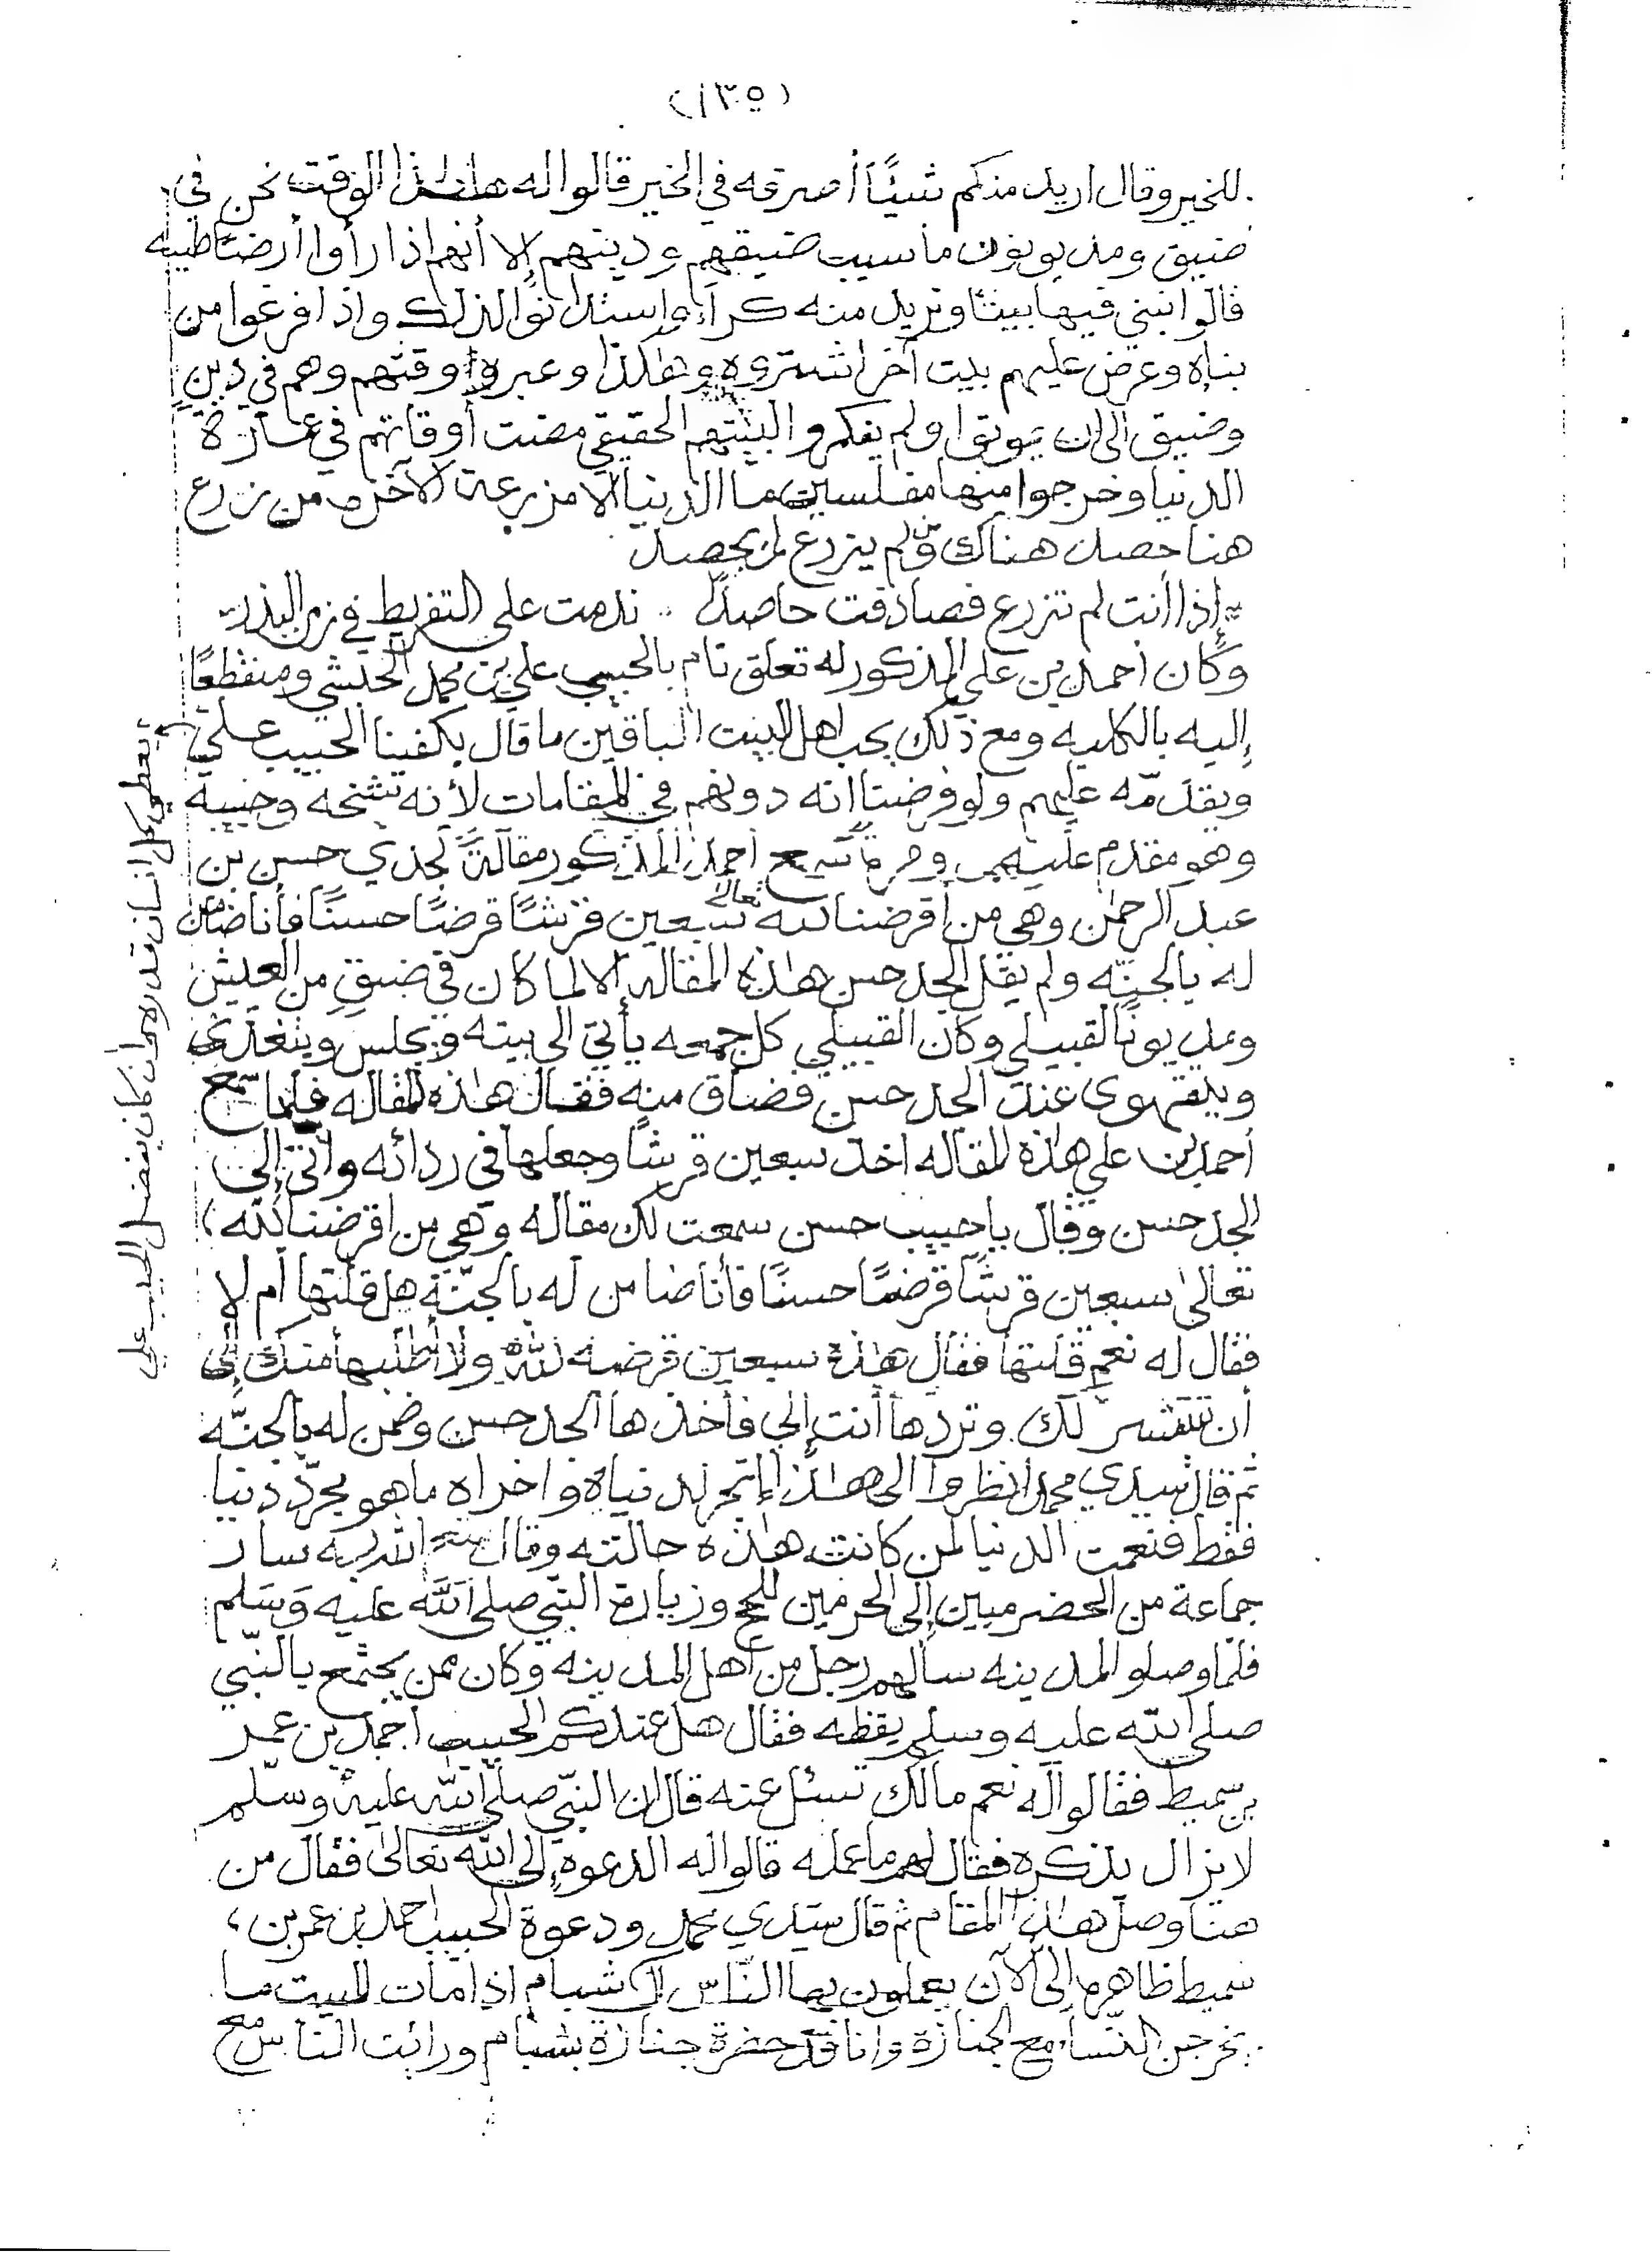 (١٣٥)
للخير وقال اريد منكم شيئًا أصرفه في الخير قالوا له هذا الوقت نحن في
ضيق ومديونون ما سبب ضيقهم ودينهم إلا أنهم اذا رأوا أرضًا طيبه
قالوا نبني فيها بيتًا ونريد منه كراءً واستدانوا لذلك واذا فرغوا من
بناه وعرض عليهم بيت آخر اشتروه وهكذا وعبروا وقتهم وهم في دينٍ
وضيق الى ان يموتوا ولم يفكروا لبيتهم الحقيقي مضت أوقاتهم في عمارة
الدنيا وخرجوا منها مفلسين ما الدنيا الا مزرعة الآخره من زرع
هنا حصد هناك ومن لم يزرع لن يحصد
إذا أنت لم تزرع فصادفت حاصدًا .. ندمت على التفريط في زمن البذر
وكان أحمد بن علي المذكور له تعلق تام بالحبيب علي بن محمد الحبشي ومنقطعًا
إليه بالكليه ومع ذلك يحب اهل البيت الباقين ما قال يكفينا الحبيب علي
ويقدمّه عليهم ولو فرضنا انه دونهم في المقامات لأنه شيخه وحبيبه
وهو مقدم عليهم ومرةً سمع احمد المذكور مقالةً لجدي حسن بن
عبد الرحمٰن وهي من أقرضنا لله تعالى سبعين قرشًا قرضًا حسنًا فأنا ضامن
له بالجنّه ولم يقل الجد حسن هٰذه المقاله الا لما كان في ضيقٍ من العيش
ومديونًا لقبيلي وكان القبيلي كل جمعه يأتي الى بيته ويجلس ويتغذى
ويتقهوى عند الجد حسن فضاق منه فقال هٰذه المقاله فلما سمع
أحمد بن علي هٰذه المقاله اخذ سبعين قرشًا وجعلها في ردائه وأتى إلى
الجد حسن وقال يا حبيب حسن سمعت لك مقاله وهي من اقرضنا لله
تعالىٰ سبعين قرشًا قرضًا حسنًا فأنا ضامن له بالجنّة هل قلتها أم لا
فقال له نعم قلتها فقال هٰذه سبعين قرضه لله ولا أطلبها منك إلى
أن تتيسر لك وتردها أنت إلي فأخذها الجد حسن وضمن له بالجنّه
ثم قال سيدي محمد انظروا الى هٰذا إتجر لدنياه واخراه ما هو مجرّد دنيا
فقط فنعمت الدنيا لمن كانت هٰذه حالته وقال سار
جماعة من الحضرميين إلى الحرمين للحج وزيارة النبي صلى الله عليه وَسَلم
فلمّا وصلو المدينه سألهم رجل من أهل المدينه وكان ممن يجتمع بالنّبي
صلى الله عليه وسلم يقظه فقال هل عندكم الحبيب أحمد بن عمر
بن سميط فقالوا له نعم مالك تسئل عنه قال ان النبّي صلى الله عليه وسلّم
لا يزال يذكره فقال لهم ما عمله قالوا له الدعوه إلى الله تعالىٰ فقال من
هنا وصل هٰذا المقام ثم قال سيدي محمد ودعوة الحبيب احمد بن عمر بن
سميط ظاهره الى الآن يعملون بها النّاس شبام اذا مات الميت ما
يخرجن النّساء مع الجنازة وانا قد حضرة جنازة بشبام ورأيت الناس مع
يعطي كل انسان قدره وان كان يفضل الحبيب علي